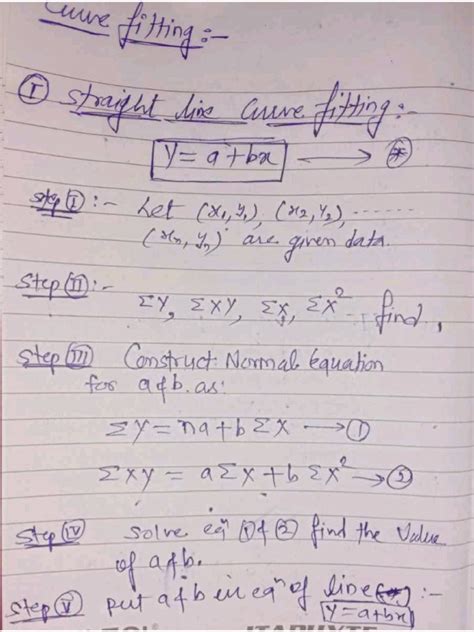 Curve fitting :-
(I) straight line Curve fitting :-
y = a + bx → (*)
step (I) :- Let (x₁,y₁), (x₂,y₂), ......
(xₙ, yₙ) are given data.
Step (II) :-
Σy, Σxy, Σx, Σx² find,
Step (III) Construct Normal Equation
for a & b. as:
Σy = na + bΣx → (1)
Σxy = aΣx + bΣx² → (2)
Step (IV) solve eqⁿ (1) & (2) find the value
of a & b.
Step (V) put a & b in eqⁿ of line (*) :-
y = a + bx